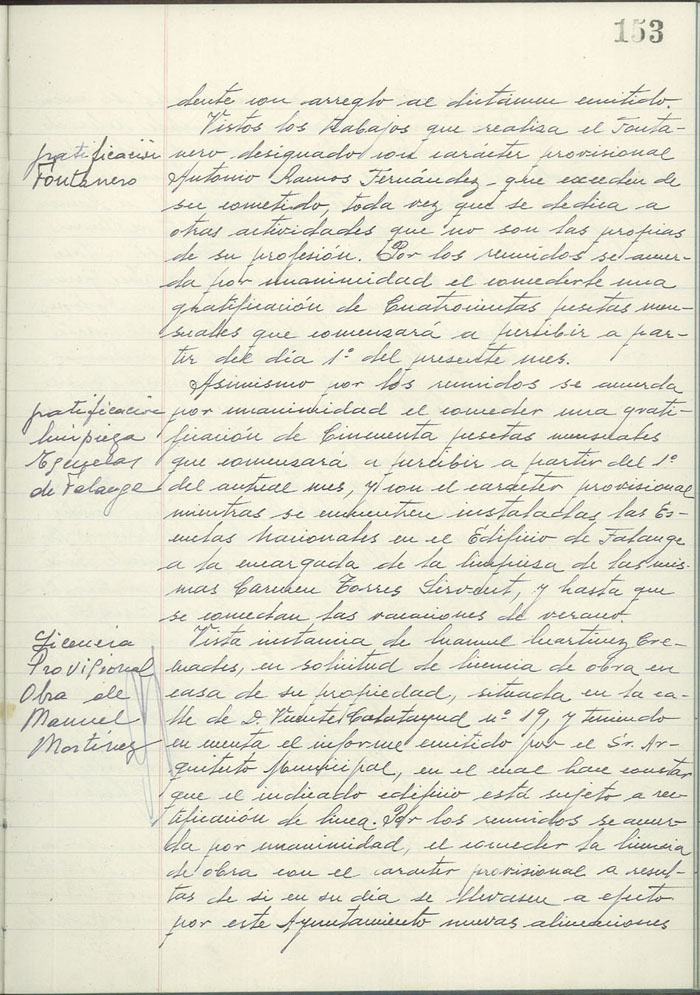 153
dente con arreglo al dictámen emitido.
Vistos los trabajos que realiza el Fonta-
gratificación
Fontanero
nero designado con carácter provisional
Antonio Ramos Fernández, que exceden de
su cometido, toda vez que se dedica a
otras actividades que no son las propias
de su profesión. Por los reunidos se acuer-
da por unanimidad el concederle una
gratificación de Cuatrocientas pesetas men-
suales que comenzará a percibir a par-
tir del día 1º del presente mes.
Asimismo por los reunidos se acuerda
gratificación
limpieza
Escuelas
de Falange
por unanimidad el conceder una grati-
ficación de Cincuenta pesetas mensuales
que comenzará a percibir a partir del 1º
del actual mes, y con el carácter provisional
mientras se encuentren instaladas las Es-
cuelas Nacionales en el Edificio de Falange
a la encargada de la limpieza de las mis-
mas Carmen Torres Sirvent, y hasta que
se concedan las vacaciones de verano.
Licencia
Provisional
Obra de
Manuel
Martínez
Vista instancia de Manuel Martínez Cre-
mades, en solicitud de licencia de obra en
casa de su propiedad, situada en la ca-
lle de D. Vicente Calatayud nº 19, y teniendo
en cuenta el informe emitido por el Sr. Ar-
quitecto Municipal, en el cual hace constar
que el indicado edificio está sujeto a rec-
tificación de linea. Por los reunidos se acuer-
da por unanimidad, el conceder la licencia
de obra con el carácter provisional a resul-
tas de si en su día se llevasen a efecto
por este Ayuntamiento nuevas alineaciones